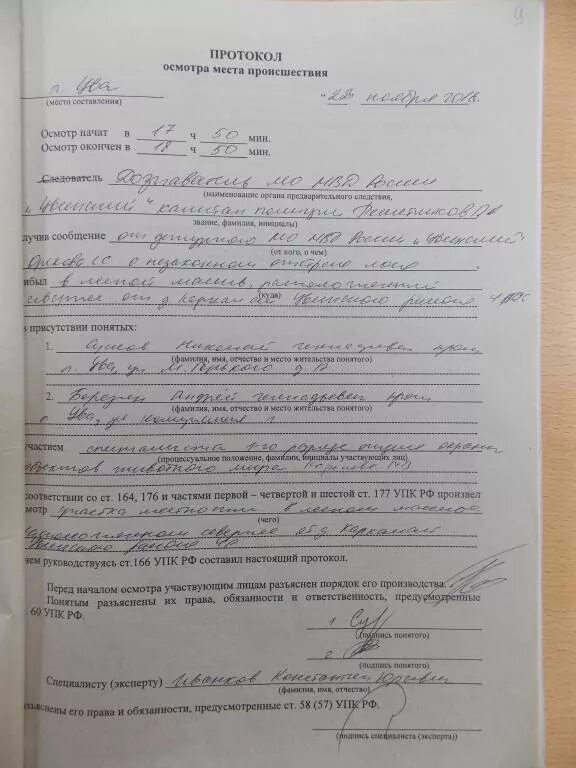 9
ПРОТОКОЛ
осмотра места происшествия
п. Ува
(место составления)
"22" ноября 2018.
Осмотр начат в 17 ч 50 мин.
Осмотр окончен в 18 ч 50 мин.
Следователь Дознаватель МО МВД России
(наименование органа предварительного следствия,
"Увинский" капитан полиции
звание, фамилия, инициалы)
лучив сообщение от дежурного МО МВД России "Увинский"
(от кого, о чем)
СС о незаконном отстреле лося
был в лесной массив, расположенный
(куда)
севернее от д. Каркалай Увинского района
в присутствии понятых:
1. Николай Геннадьевич
(фамилия, имя, отчество и место жительства понятого)
п. Ува, ул. М. Горького д.
2. Андрей Геннадьевич
(фамилия, имя, отчество и место жительства понятого)
п. Ува, ул
участием специалиста 1го разряда отдела охраны
(процессуальное положение, фамилии, инициалы участвующих лиц)
объектов животного мира
соответствии со ст. 164, 176 и частями первой – четвертой и шестой ст. 177 УПК РФ произвел
мотр участка местности в лесном массиве
(чего)
расположенном севернее от д. Каркалай
Увинского района УР
чем руководствуясь ст.166 УПК РФ составил настоящий протокол.
Перед началом осмотра участвующим лицам разъяснен порядок его производства.
Понятым разъяснены их права, обязанности и ответственность, предусмотренные
. 60 УПК РФ.
1
(подпись понятого)
2
(подпись понятого)
Специалисту (эксперту) Иванков Константин Юрьевич
(фамилия, имя, отчество)
зъяснены его права и обязанности, предусмотренные ст. 58 (57) УПК РФ.
(подпись специалиста (эксперта))